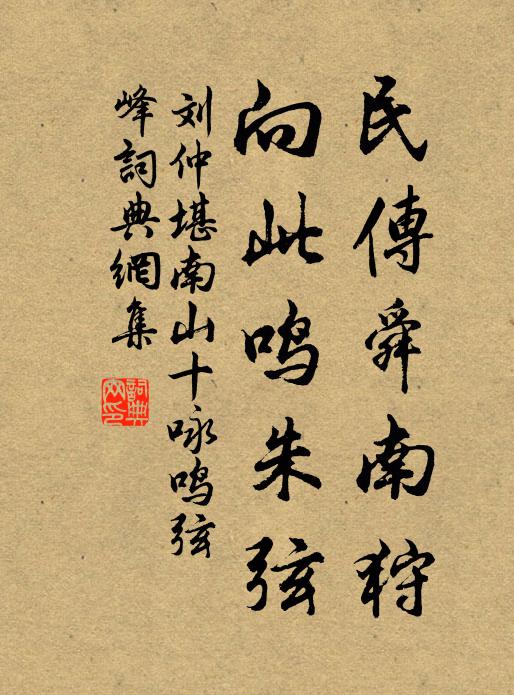 民傳舜南狩
向此鸣朱弦
刘仲堪南山十咏鸣弦
峰詞典網集
詞典網印